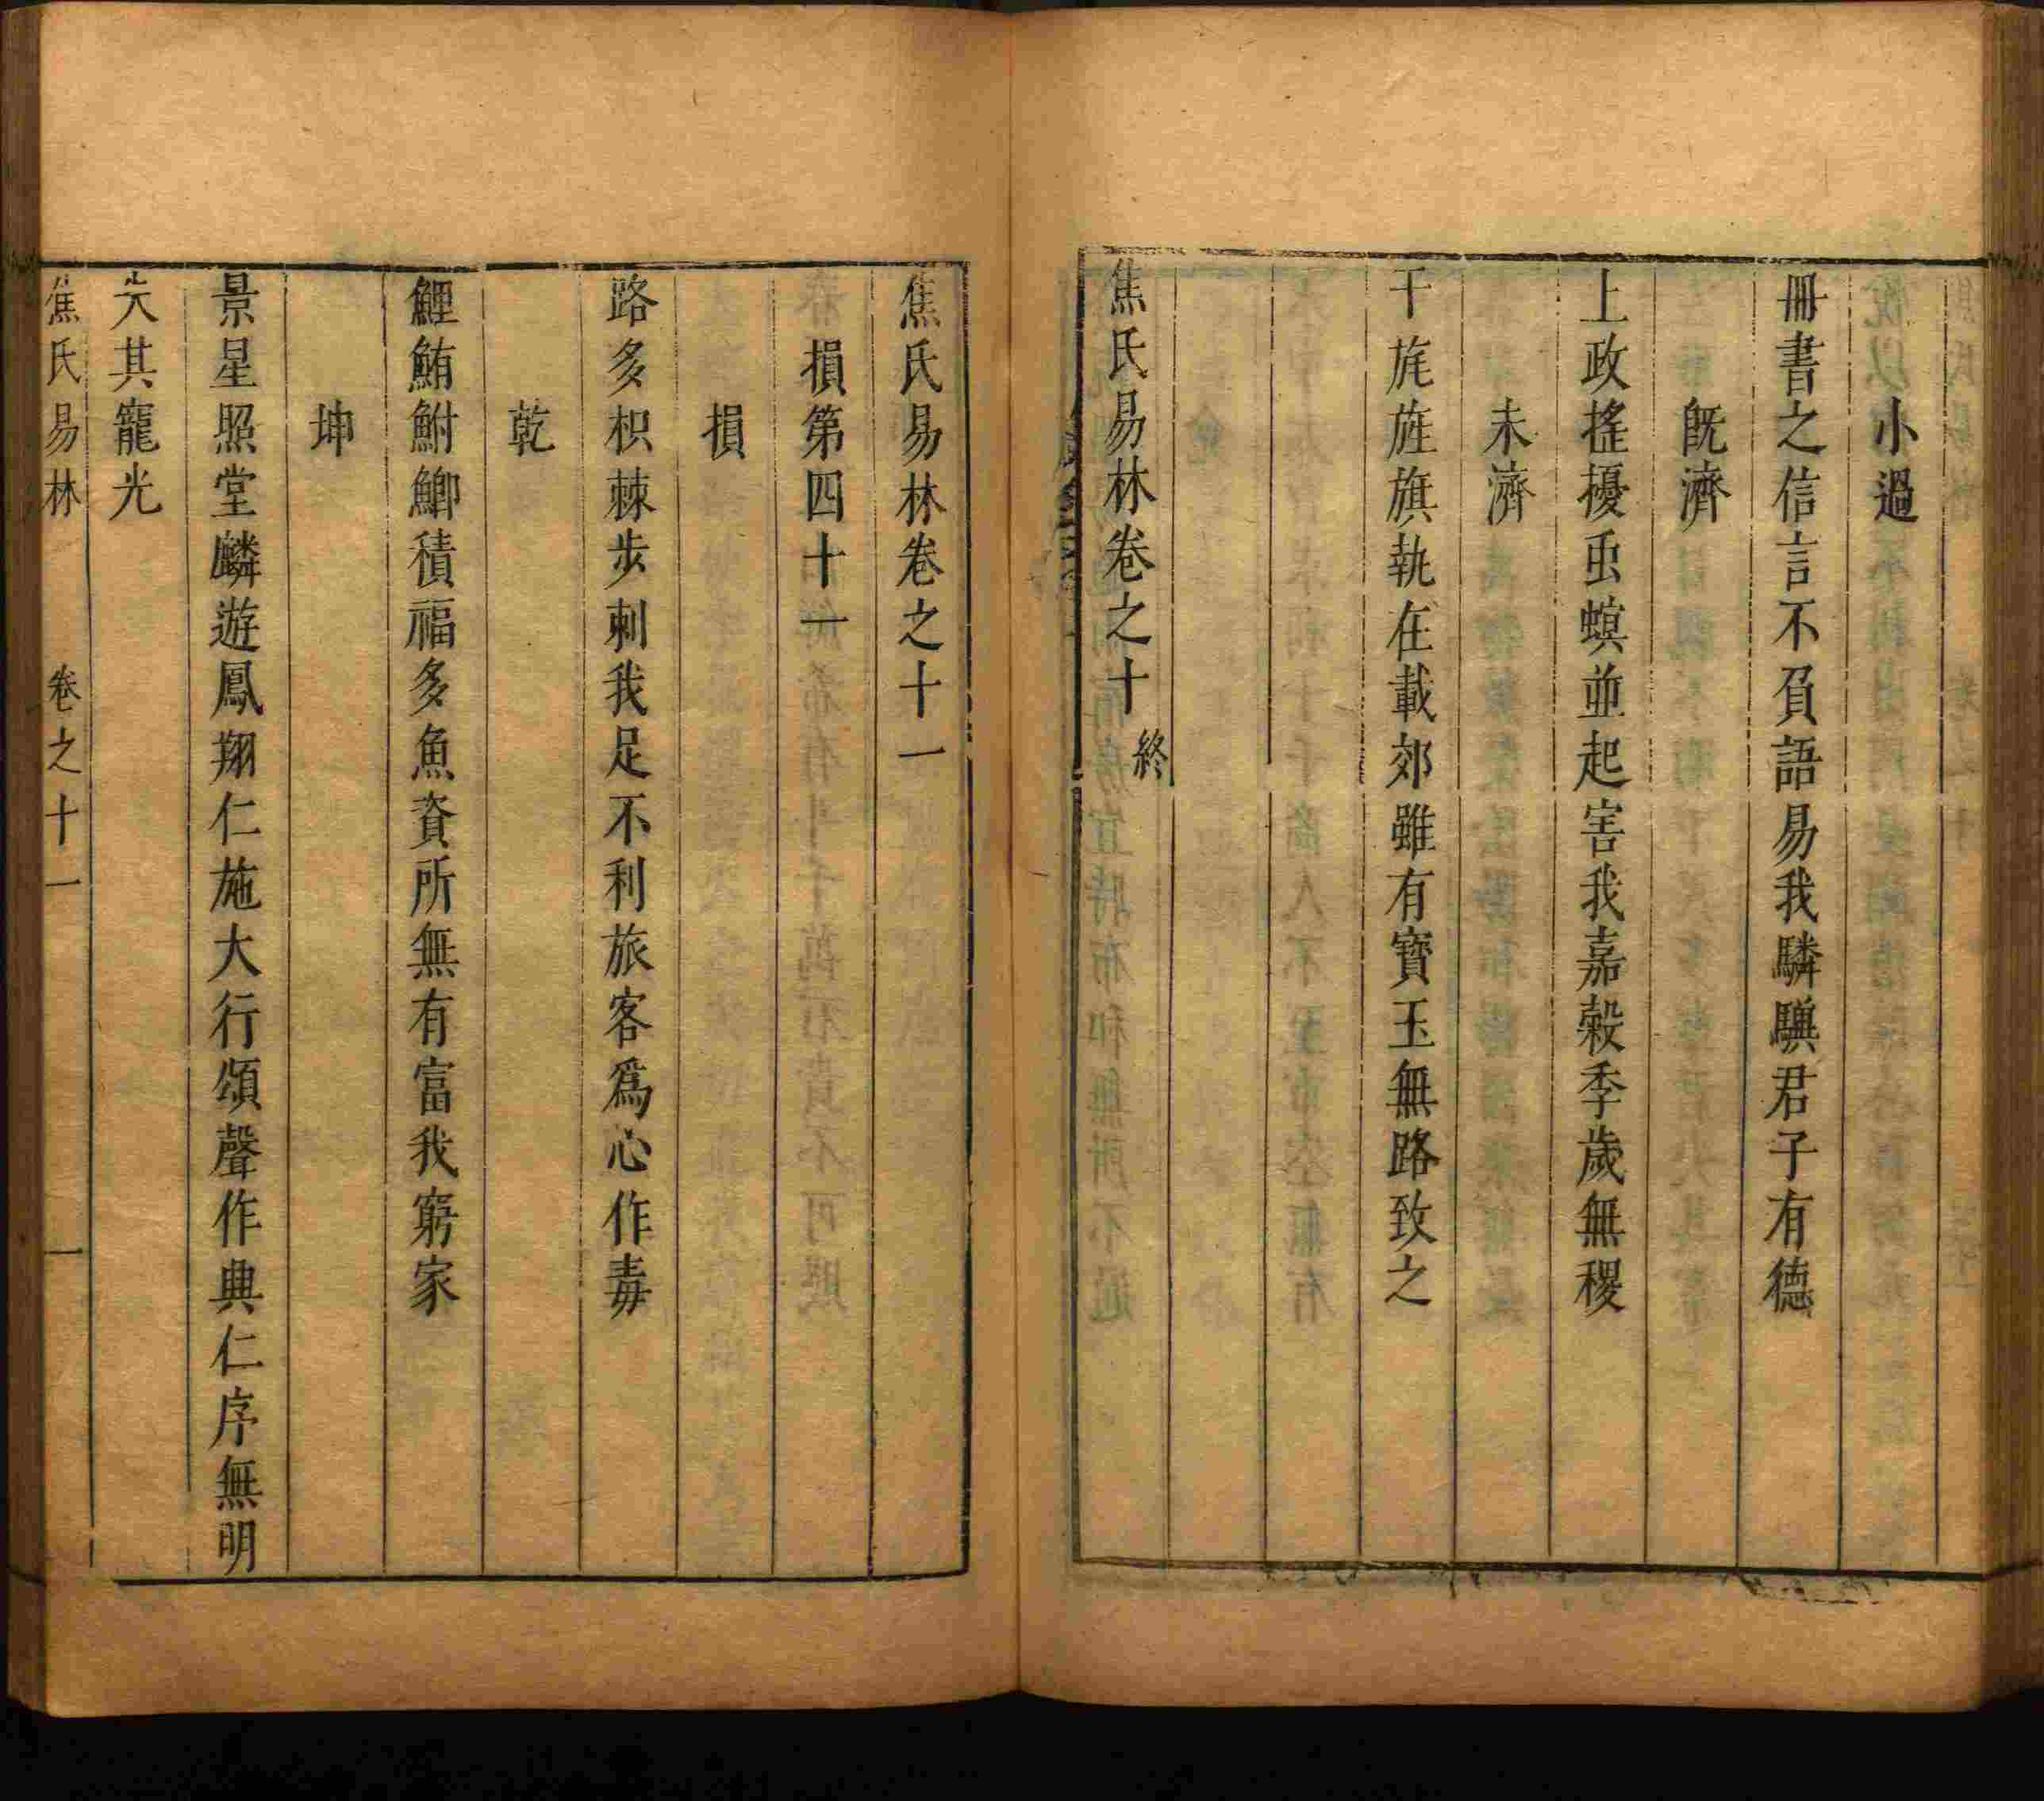 小過
冊書之信言不負語易我驎騏君子有德
旣濟
上政搖擾虫螟並起害我嘉榖季歲無稷
未濟
干旄旌旗執在載郊雖有寶玉無路致之
焦氏易林卷之十 終
焦氏易林卷之十一
損第四十一
損
路多枳棘步刺我足不利旅客爲心作毒
乾
鯉鮪鮒鯽積福多魚資所無有富我窮家
坤
景星照堂麟遊鳳翔仁施大行頌聲作典仁序無明
失其寵光
焦氏易林 卷之十一 一